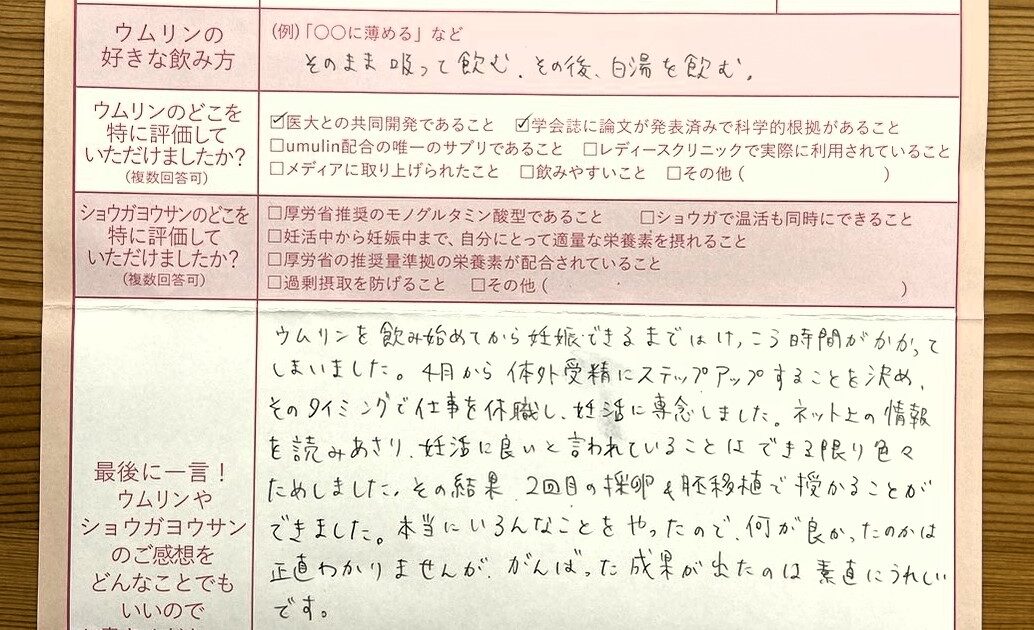 ウムリンの
好きな飲み方
(例)「○○に薄める」など
そのまま吸って飲む、その後、白湯を飲む。
ウムリンのどこを
特に評価して
いただけましたか?
(複数回答可)
☑医大との共同開発であること ☑学会誌に論文が発表済みで科学的根拠があること
□umulin配合の唯一のサプリであること □レディースクリニックで実際に利用されていること
□メディアに取り上げられたこと □飲みやすいこと □その他( )
ショウガヨウサンのどこを
特に評価して
いただけましたか?
(複数回答可)
□厚労省推奨のモノグルタミン酸型であること □ショウガで温活も同時にできること
□妊活中から妊娠中まで、自分にとって適量な栄養素を摂れること
□厚労省の推奨量準拠の栄養素が配合されていること
□過剰摂取を防げること □その他( )
最後に一言!
ウムリンや
ショウガヨウサン
のご感想を
どんなことでも
いいので
ウムリンを飲み始めてから妊娠できるまではけっこう時間がかかって
しまいました。4月から体外受精にステップアップすることを決め、
そのタイミングで仕事を休職し、妊活に専念しました。ネット上の情報
を読みあさり、妊活に良いと言われていることはできる限り色々
ためしました。その結果、2回目の採卵&胚移植で授かることが
できました。本当にいろんなことをやったので、何が良かったのかは
正直わかりませんが、がんばった成果が出たのは素直にうれしい
です。